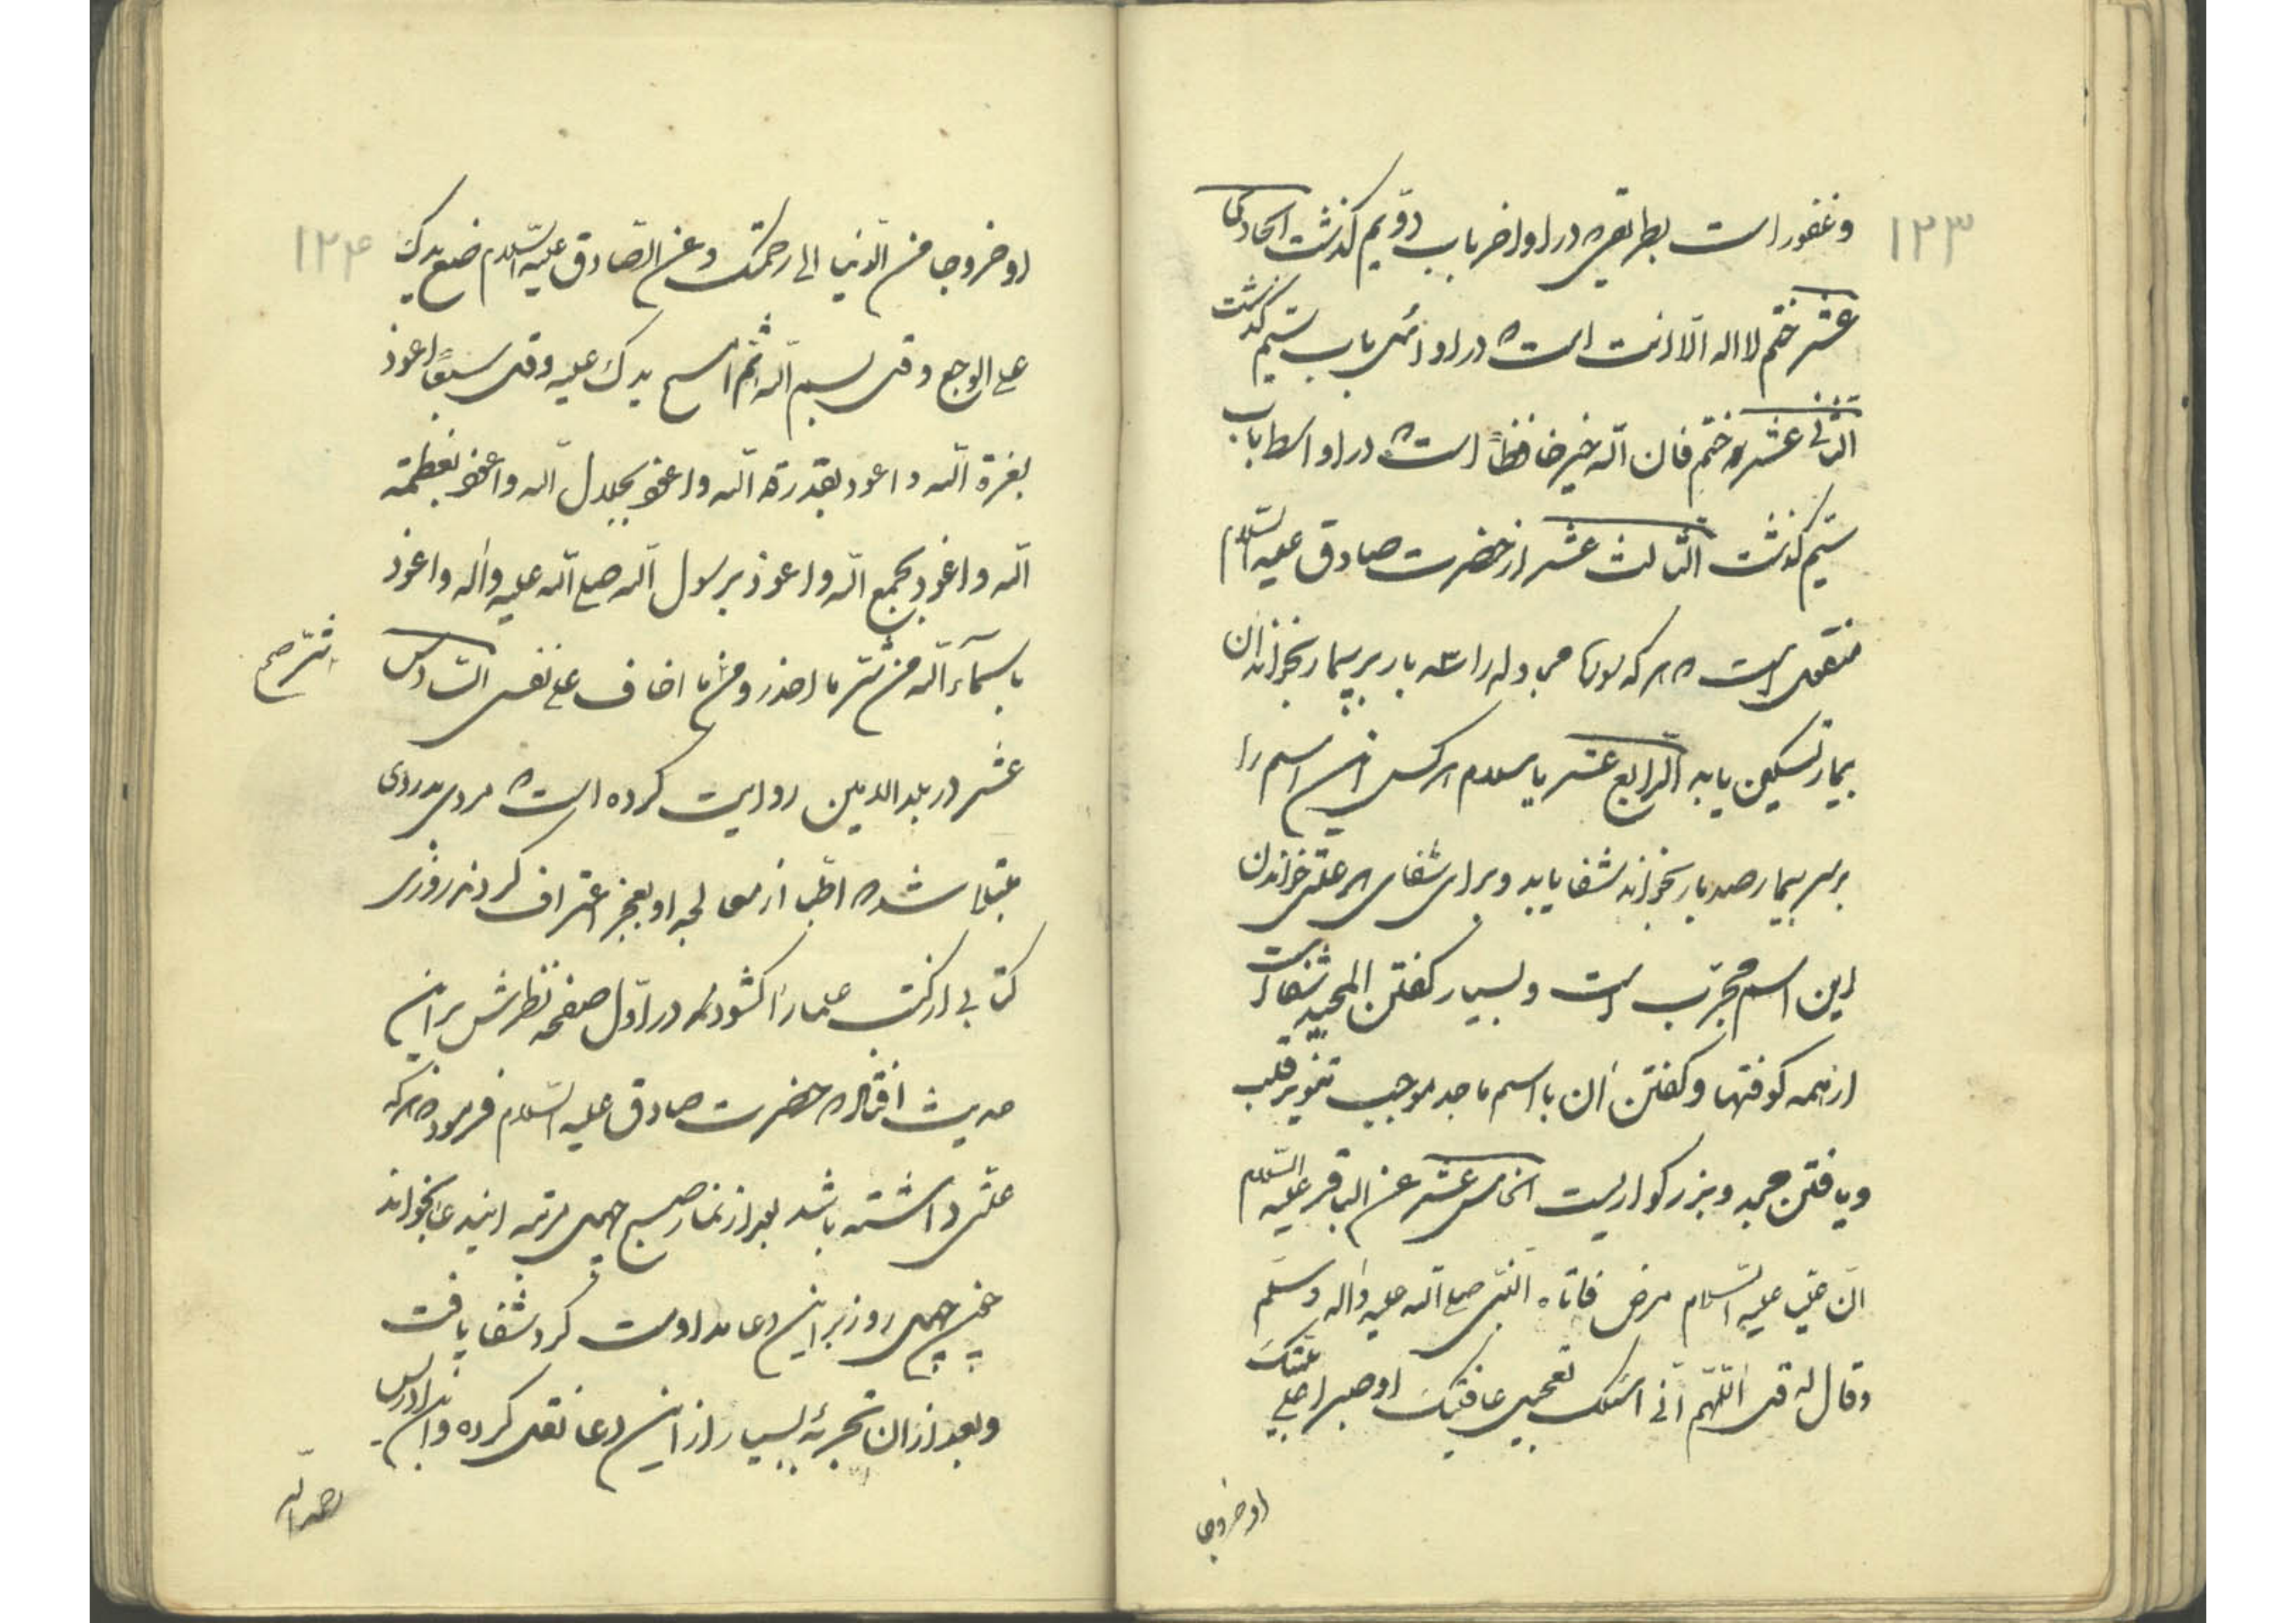 ۱۲۳
وغفور است بطریقی که در اواخر باب دوّیم گذشت الحادی
عشر ختم لا اله الّا انت است که در اوائل باب سیّم گذشت
الثانی عشر ختم فان الله خیر حافظاً است که در اواسط باب
سیّم گذشت الثالث عشر از حضرت صادق علیه السّلام
منقول است که هر که را سه بار بر بیمار بخواند ان
بیمار تسکین یابد الرابع عشر یا سلام هر کس این اسم را
بر سر بیمار صد بار بخواند شفا یابد و برای شفای هر علتی خواندن
این اسم مجرّب است و بسیار کفتن المجید شفا است
از همه کوفتها و کفتن ان با اسم ماجد موجب تنویر قلب
و یافتن مجد و بزرکواریست الخامس عشر عن الباقر علیه السّلام
انّ علی علیه السّلام مرض فاتاه النّبی صلی الله علیه واله وسلّم
وقال له قل اللّهمّ انّی اسئلک تعجیل عافیتک او صبرا علی بلیّتک
او خروجا
۱۲۴
او خروجا من الدّنیا الی رحمتک وعن الصّادق علیه السّلام ضع یدک
علی الوجع وقل بسم الله ثمّ امسح یدک علیه وقل سبعاً اعوذ
بعزة الله واعوذ بقدرة الله واعوذ بجلال الله واعوذ بعظمة
الله واعوذ بجمع الله واعوذ برسول الله صلی الله علیه واله واعوذ
باسماء الله من شر ما احذر ومن ما اخاف علی نفسی السّادس
شرّ صح
عشر در بلد الامین روایت کرده است که مردی بدردی
مبتلا شد که اطبا از معالجه او بعجز اعتراف کردند روزی
کتابی از کتب علما را کشوده در اوّل صفحه نظرش بر این
حدیث افتاد که حضرت صادق علیه السّلام فرموده هر که
علتی داشته باشد بعد از نماز صبح چهل مرتبه ایندعا بخواند
چهل روز بر این دعا مداومت کرد شفا یافت
و بعد از ان تجربهٔ بسیار از این دعا نقل کرده و ابن ادریس
رحمه الله